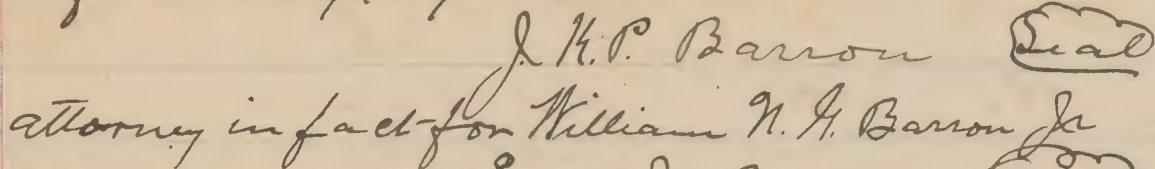 J. K. P. Barron Seal
attorney in fact for William N. G. Barron Jr